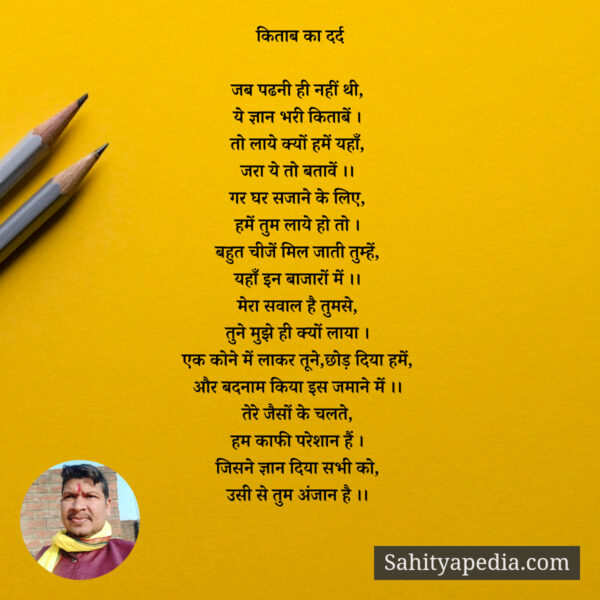 किताब का दर्द
जब पढनी ही नहीं थी,
ये ज्ञान भरी किताबें ।
तो लाये क्यों हमें यहाँ,
जरा ये तो बतावें ।।
गर घर सजाने के लिए,
हमें तुम लाये हो तो ।
बहुत चीजें मिल जाती तुम्हें,
यहाँ इन बाजारों में ।।
मेरा सवाल है तुमसे,
तुने मुझे ही क्यों लाया ।
एक कोने में लाकर तूने,छोड़ दिया हमें,
और बदनाम किया इस जमाने में ।।
तेरे जैसों के चलते,
हम काफी परेशान हैं ।
जिसने ज्ञान दिया सभी को,
उसी से तुम अंजान है ।।
Sahityapedia.com